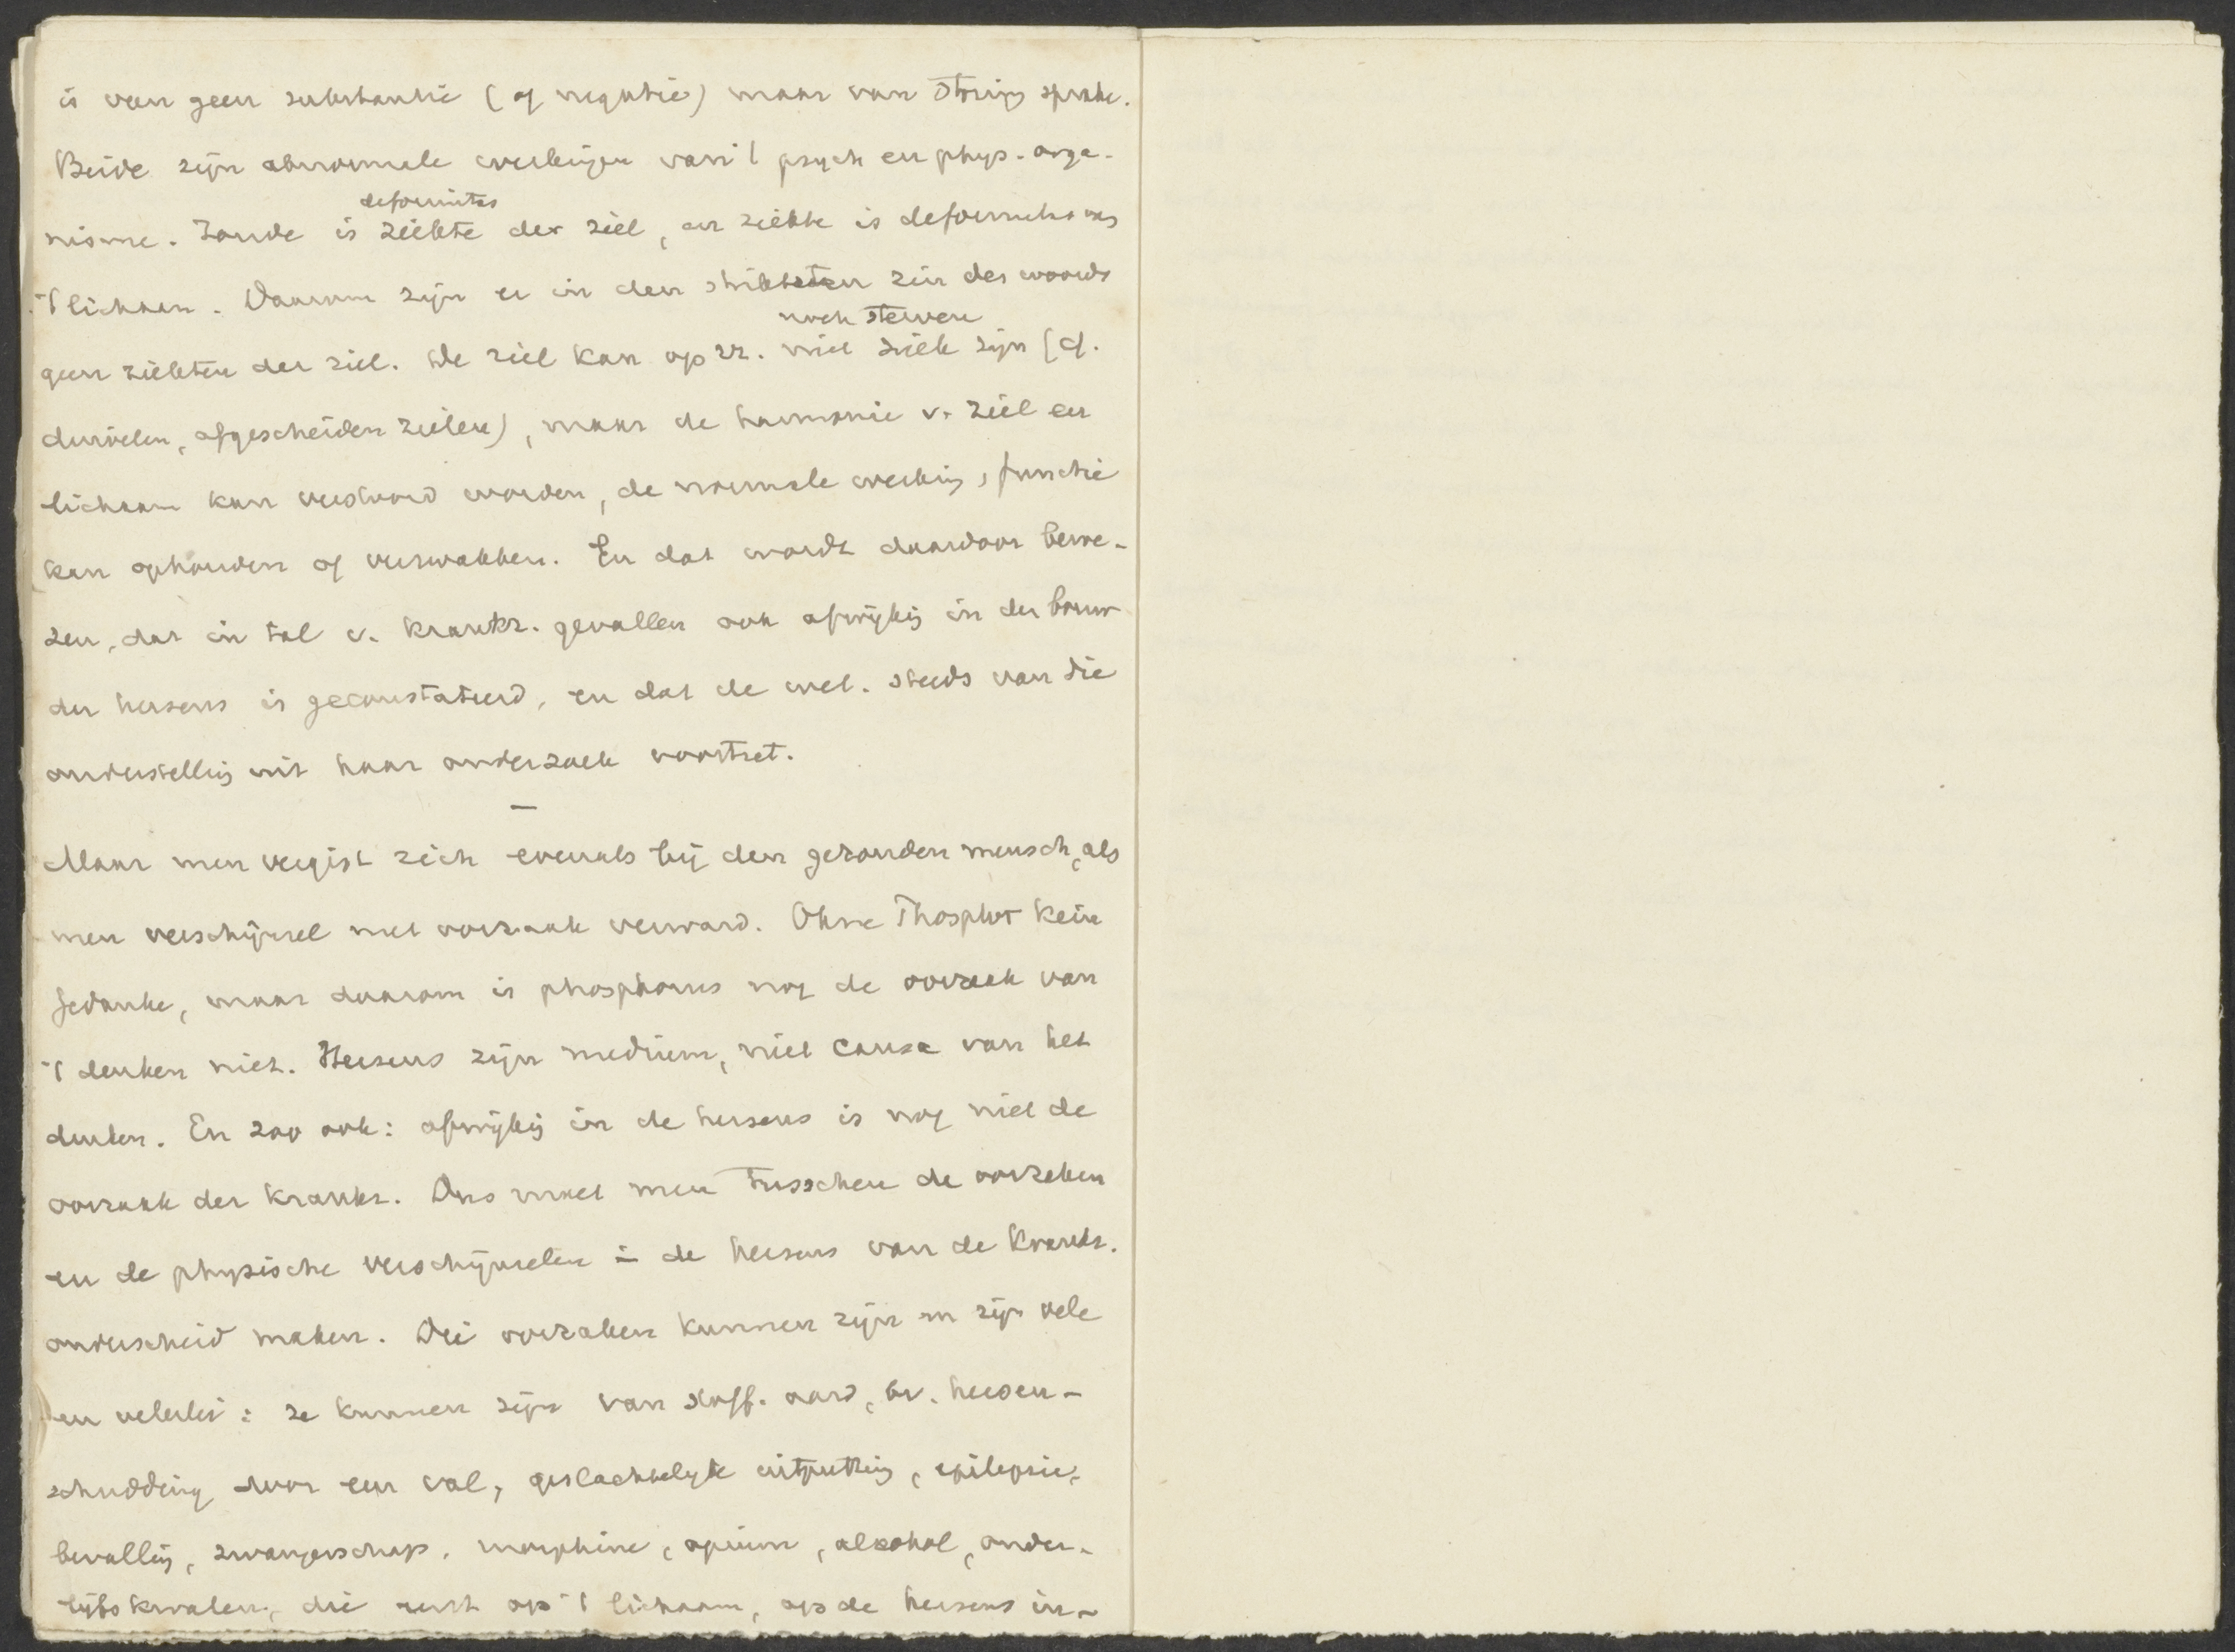 is van geen substantie (of negatie) maar van storing sprake.
Beide zijn abnormale werkingen van 't psych en phys. orga-
deformitas
nisme. Zonde is ziekte der ziel, en ziekte is deformitas van
't lichaam. Daarom zijn er in den striktsten zin des woords
noch sterven
geen ziekten der ziel. De ziel kan op zz. niet ziek zijn (cf.
duivelen, afgescheiden zielen), maar de harmonie v. ziel en
lichaam kan verstoord worden, de normale werking, functie
kan ophouden of verzwakken. En dat wordt daardoor bewe-
zen, dat in tal v. krankz. gevallen ook afwijking in den bouw
der hersens is geconstateerd, en dat de wet. steeds van die
onderstelling uit haar onderzoek voortzet.
—
Maar men vergist zich evenals bij den gezonden mensch, als
men verschijnsel met oorzaak verward. Ohne Phosphor kein
Gedanke, maar daarom is phosphorus nog de oorzaak van
't denken niet. Hersens zijn medium, niet causa van het
denken. En zoo ook: afwijking in de hersens is nog niet de
oorzaak der krankz. Dus moet men tusschen de oorzaken
en de physische verschijnselen in de hersens van de krankz.
onderscheid maken. Die oorzaken kunnen zijn en zijn vele
en velerlei: ze kunnen zijn van stoff. aard, bv. hersen-
schudding door een val, geslachtelijke uitputting, epilepsie,
bevalling, zwangerschap, morphine, opium, alcohol, onder-
lijfs kwalen, die eerst op 't lichaam, op de hersens in-